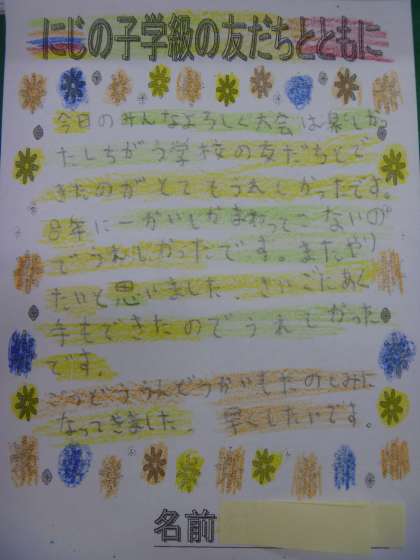 にじの子学級の友だちとともに
今日のみんなよろしく大会は楽しかっ
たしちがう学校の友だちとで
きたのがとてもうれしかったです。
8年に一かいしかまわってこないの
でうれしかったです。またやり
たいと思いました。さいごにあく
手もできたのでうれしかった
です。
うんどうかいもたのしみに
なってきました。早くしたいです。
名前